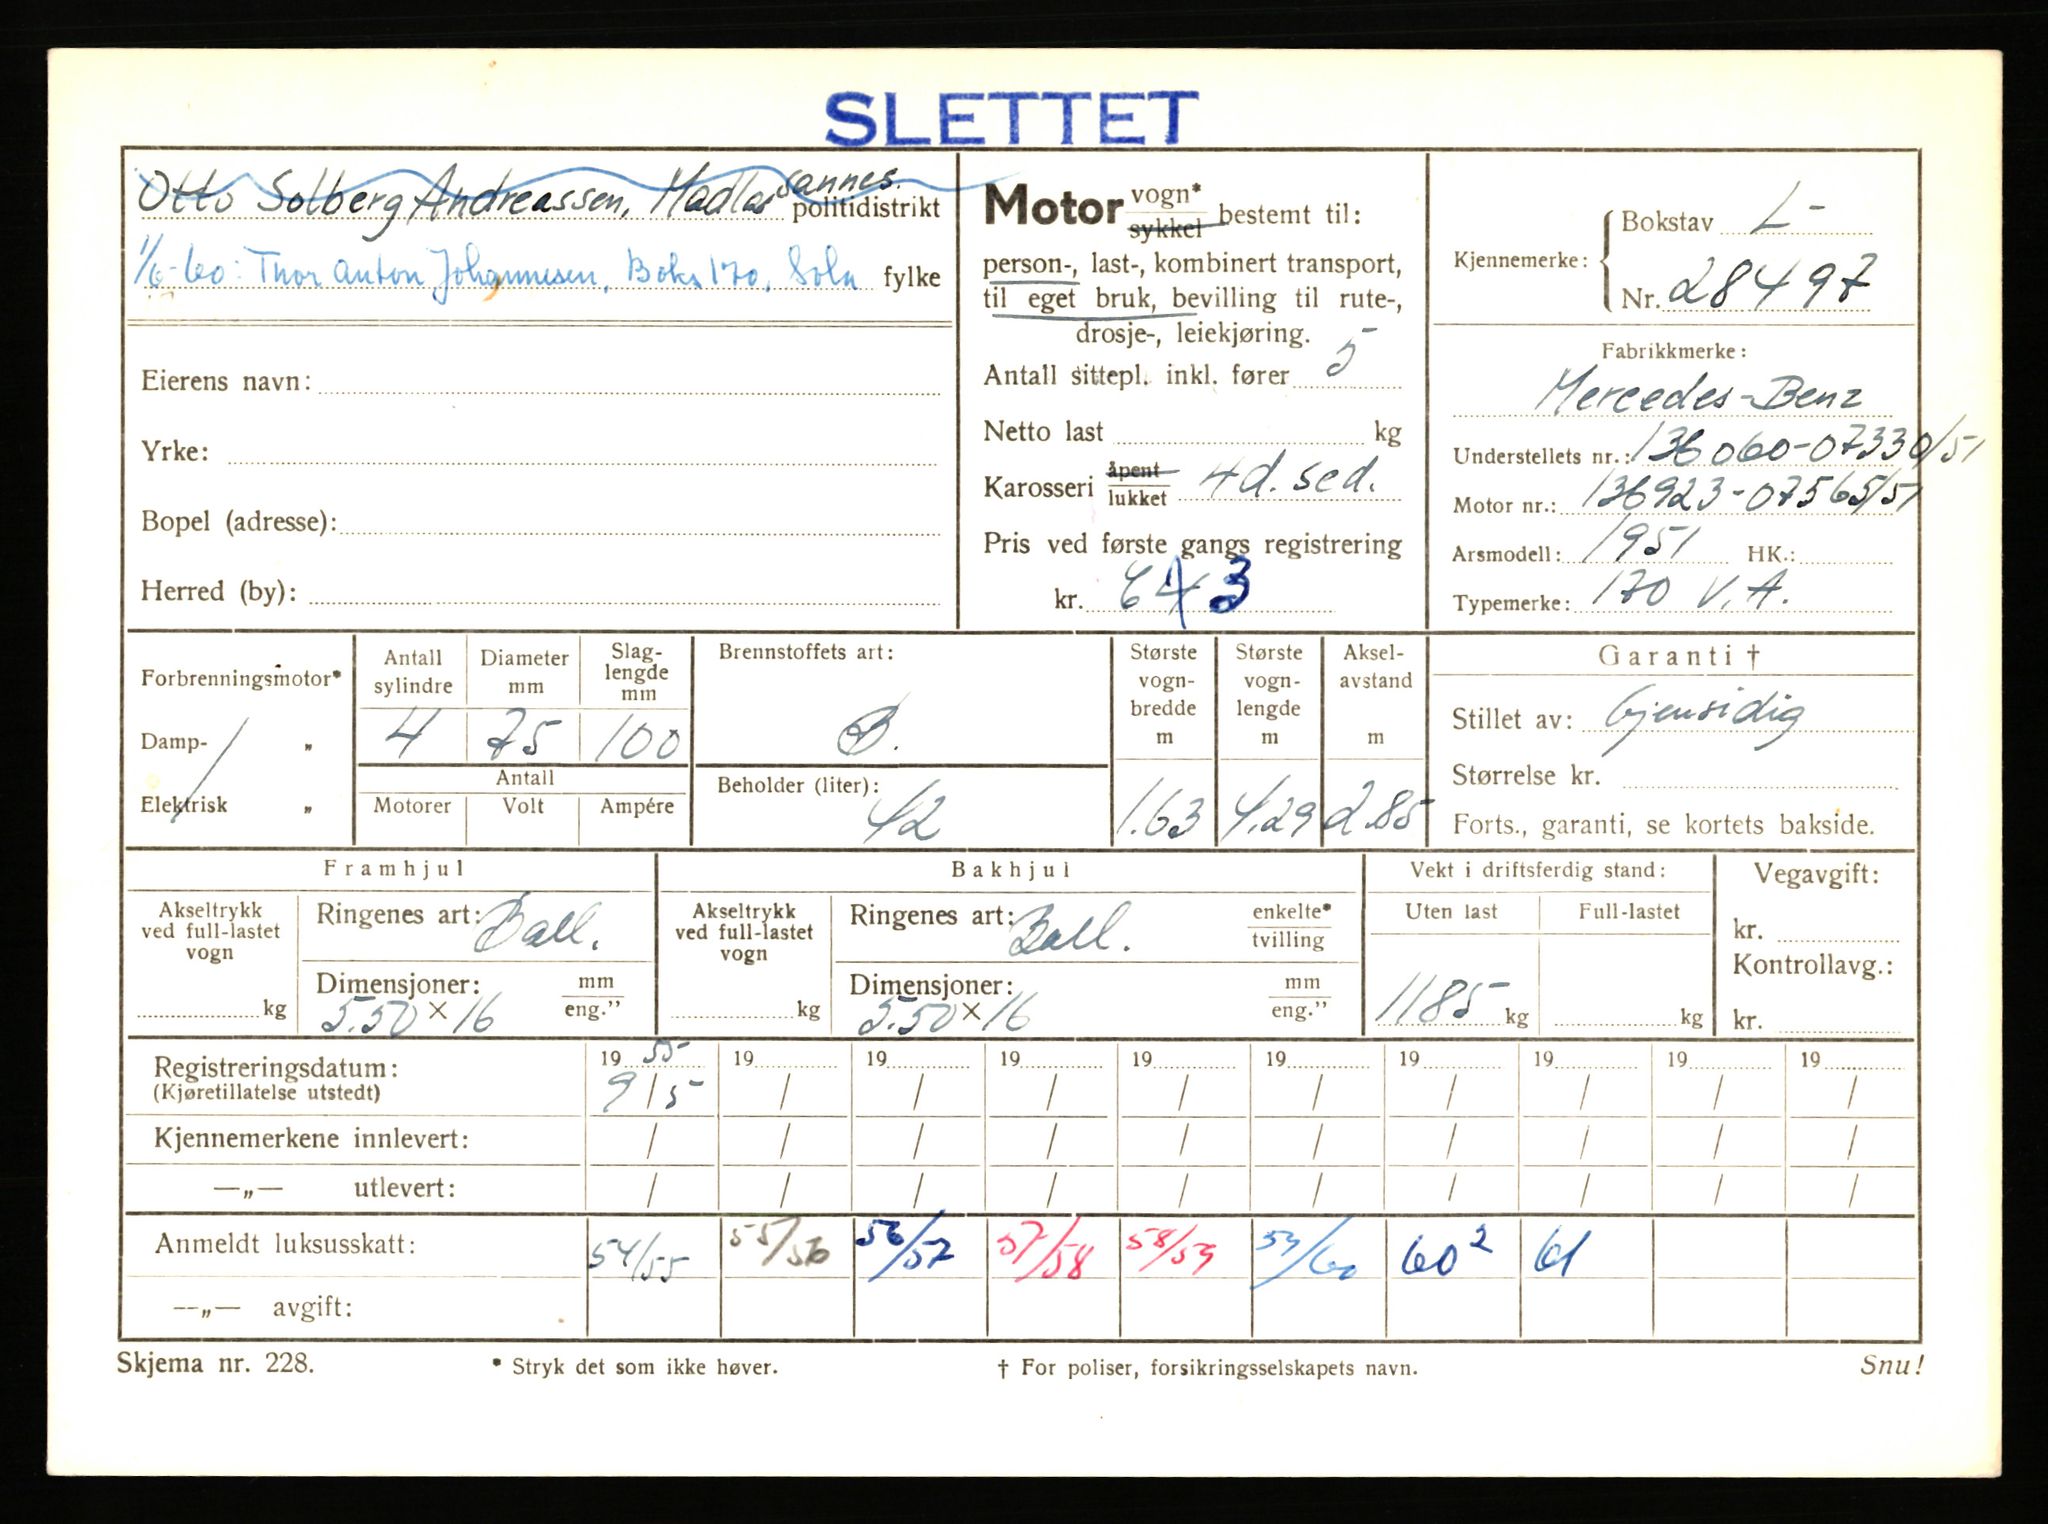 SLETTET
Otto Solberg Andreassen, Madla sannes. politidistrikt
1/6-60: Thor Anton Johannesen, Boks 170, Sola fylke
Eierens navn:
Yrke:
Bopel (adresse):
Herred (by):
Motor vogn* sykkel bestemt til:
person-, last-, kombinert transport,
til eget bruk, bevilling til rute-,
drosje-, leiekjøring.
Antall sittepl. inkl. fører 5
Netto last kg
Karosseri åpent lukket 4 d. sed.
Pris ved første gangs registrering
kr. 643
Kjennemerke: Bokstav L-
Nr. 28497
Fabrikkmerke:
Mercedes-Benz
Understellets nr.: 136060-07330/51
Motor nr.: 136923-07565/51
Arsmodell: 1951 HK.:
Typemerke: 170 V.A.
Forbrenningsmotor*
Damp- „
Elektrisk „
Antall sylindre 4
Diameter mm 75
Slaglengde mm 100
Antall
Motorer Volt Ampére
Brennstoffets art: B.
Beholder (liter): 42
Største vogn-bredde m 1.63
Største vogn-lengde m 4.29
Aksel-avstand m 2.85
Garanti †
Stillet av: Gjensidig
Størrelse kr.
Forts., garanti, se kortets bakside.
Framhjul
Akseltrykk ved full-lastet vogn kg
Ringenes art: Ball.
Dimensjoner: mm eng.”
5.50 x 16
Bakhjul
Akseltrykk ved full-lastet vogn kg
Ringenes art: Ball. enkelte* tvilling
Dimensjoner: mm eng.”
5.50 x 16
Vekt i driftsferdig stand:
Uten last 1185 kg
Full-lastet kg
Vegavgift:
kr.
Kontrollavg.:
kr.
Registreringsdatum: 19 55 19 19 19 19 19 19 19 19 19
(Kjøretillatelse utstedt) 9/5 / / / / / / / / /
Kjennemerkene innlevert: / / / / / / / / / /
—„— utlevert: / / / / / / / / / /
Anmeldt luksusskatt: 54/55 55/56 56/57 57/58 58/59 59/60 60² 61
—„— avgift:
Skjema nr. 228. * Stryk det som ikke høver. † For poliser, forsikringsselskapets navn. Snu!